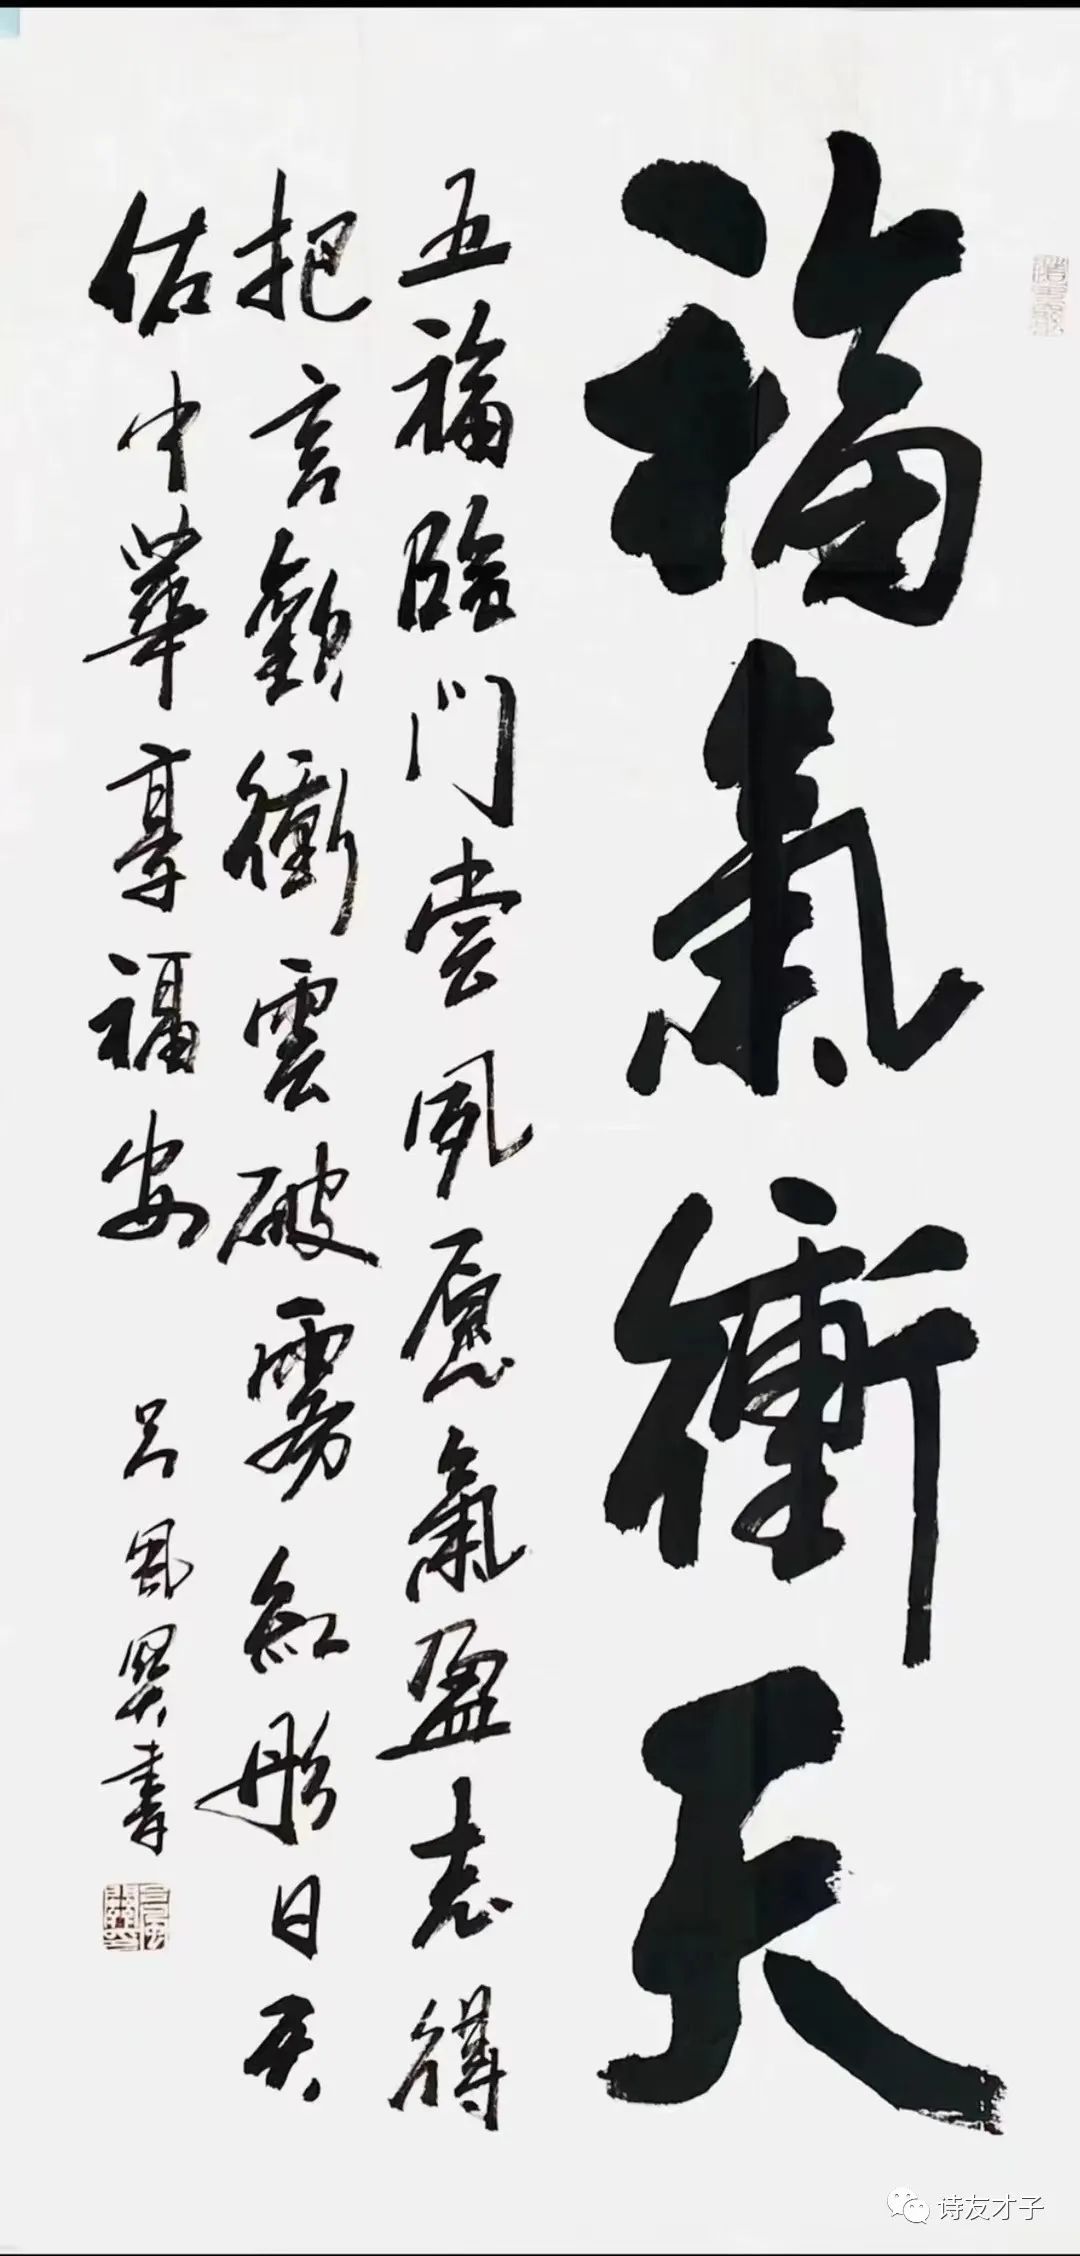 福氣衝天
五福臨門尝夙愿氣盈志得
把言歡衝雲破霧紅彤日天
佑中華享福安
呂風興書
诗友才子